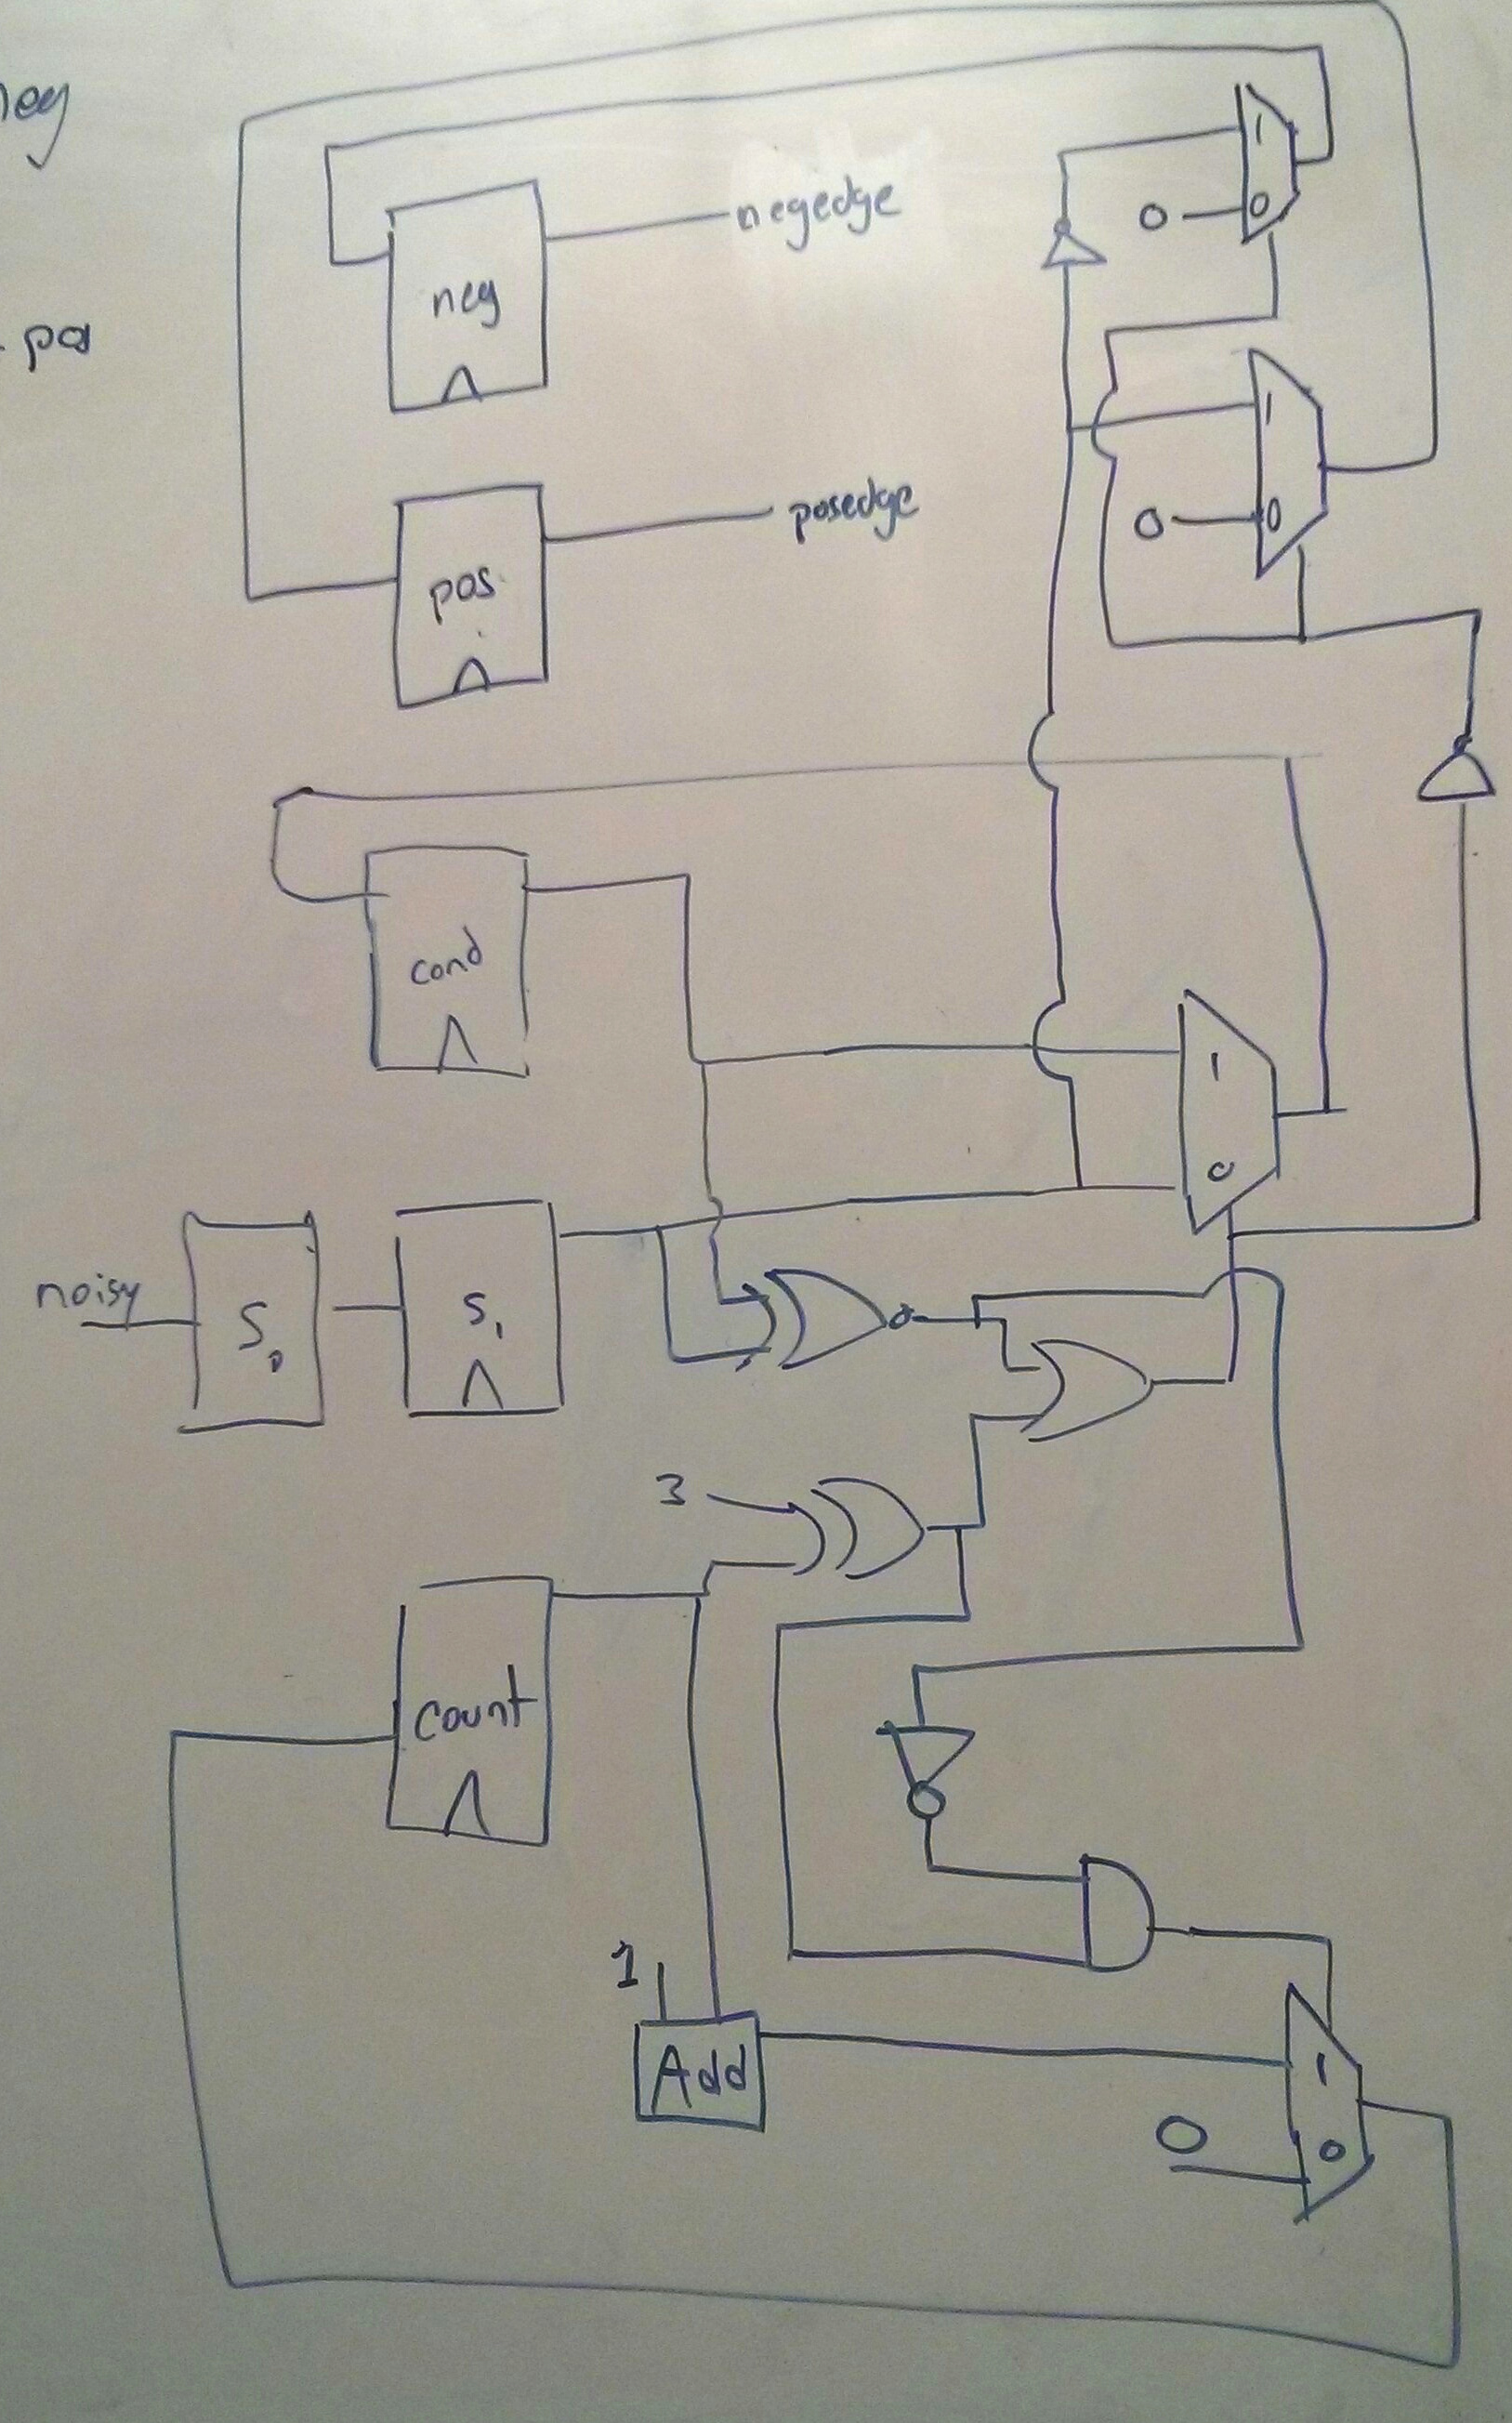 neg
1
0
negedge
0
neg
pos
1
posedge
0
0
pos
cond
1
0
noisy
S0
S1
3
count
1
Add
1
0
0